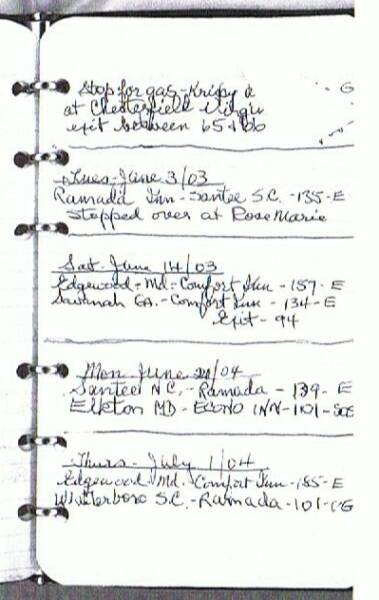 Stop for gas - Krispy
at Chesterfield Virgi
exit between 65+66
Tues - June 3/03
Ramada Inn - Santee S.C. - 135 - E
stopped over at Rose Marie
Sat - June 14/03
Edgewood - Md - Comfort Inn - 157 - E
Savanah GA. - Comfort Inn - 134 - E
Exit - 94
Mon June /04
Santee N.C. - Ramada - 139 - E
Elkton MD - ECONO INN - 101 -
Thurs - July 1/04
Edgewood Md. Comfort Inn - 155 - E
S.C. - Ramada - 101 - G